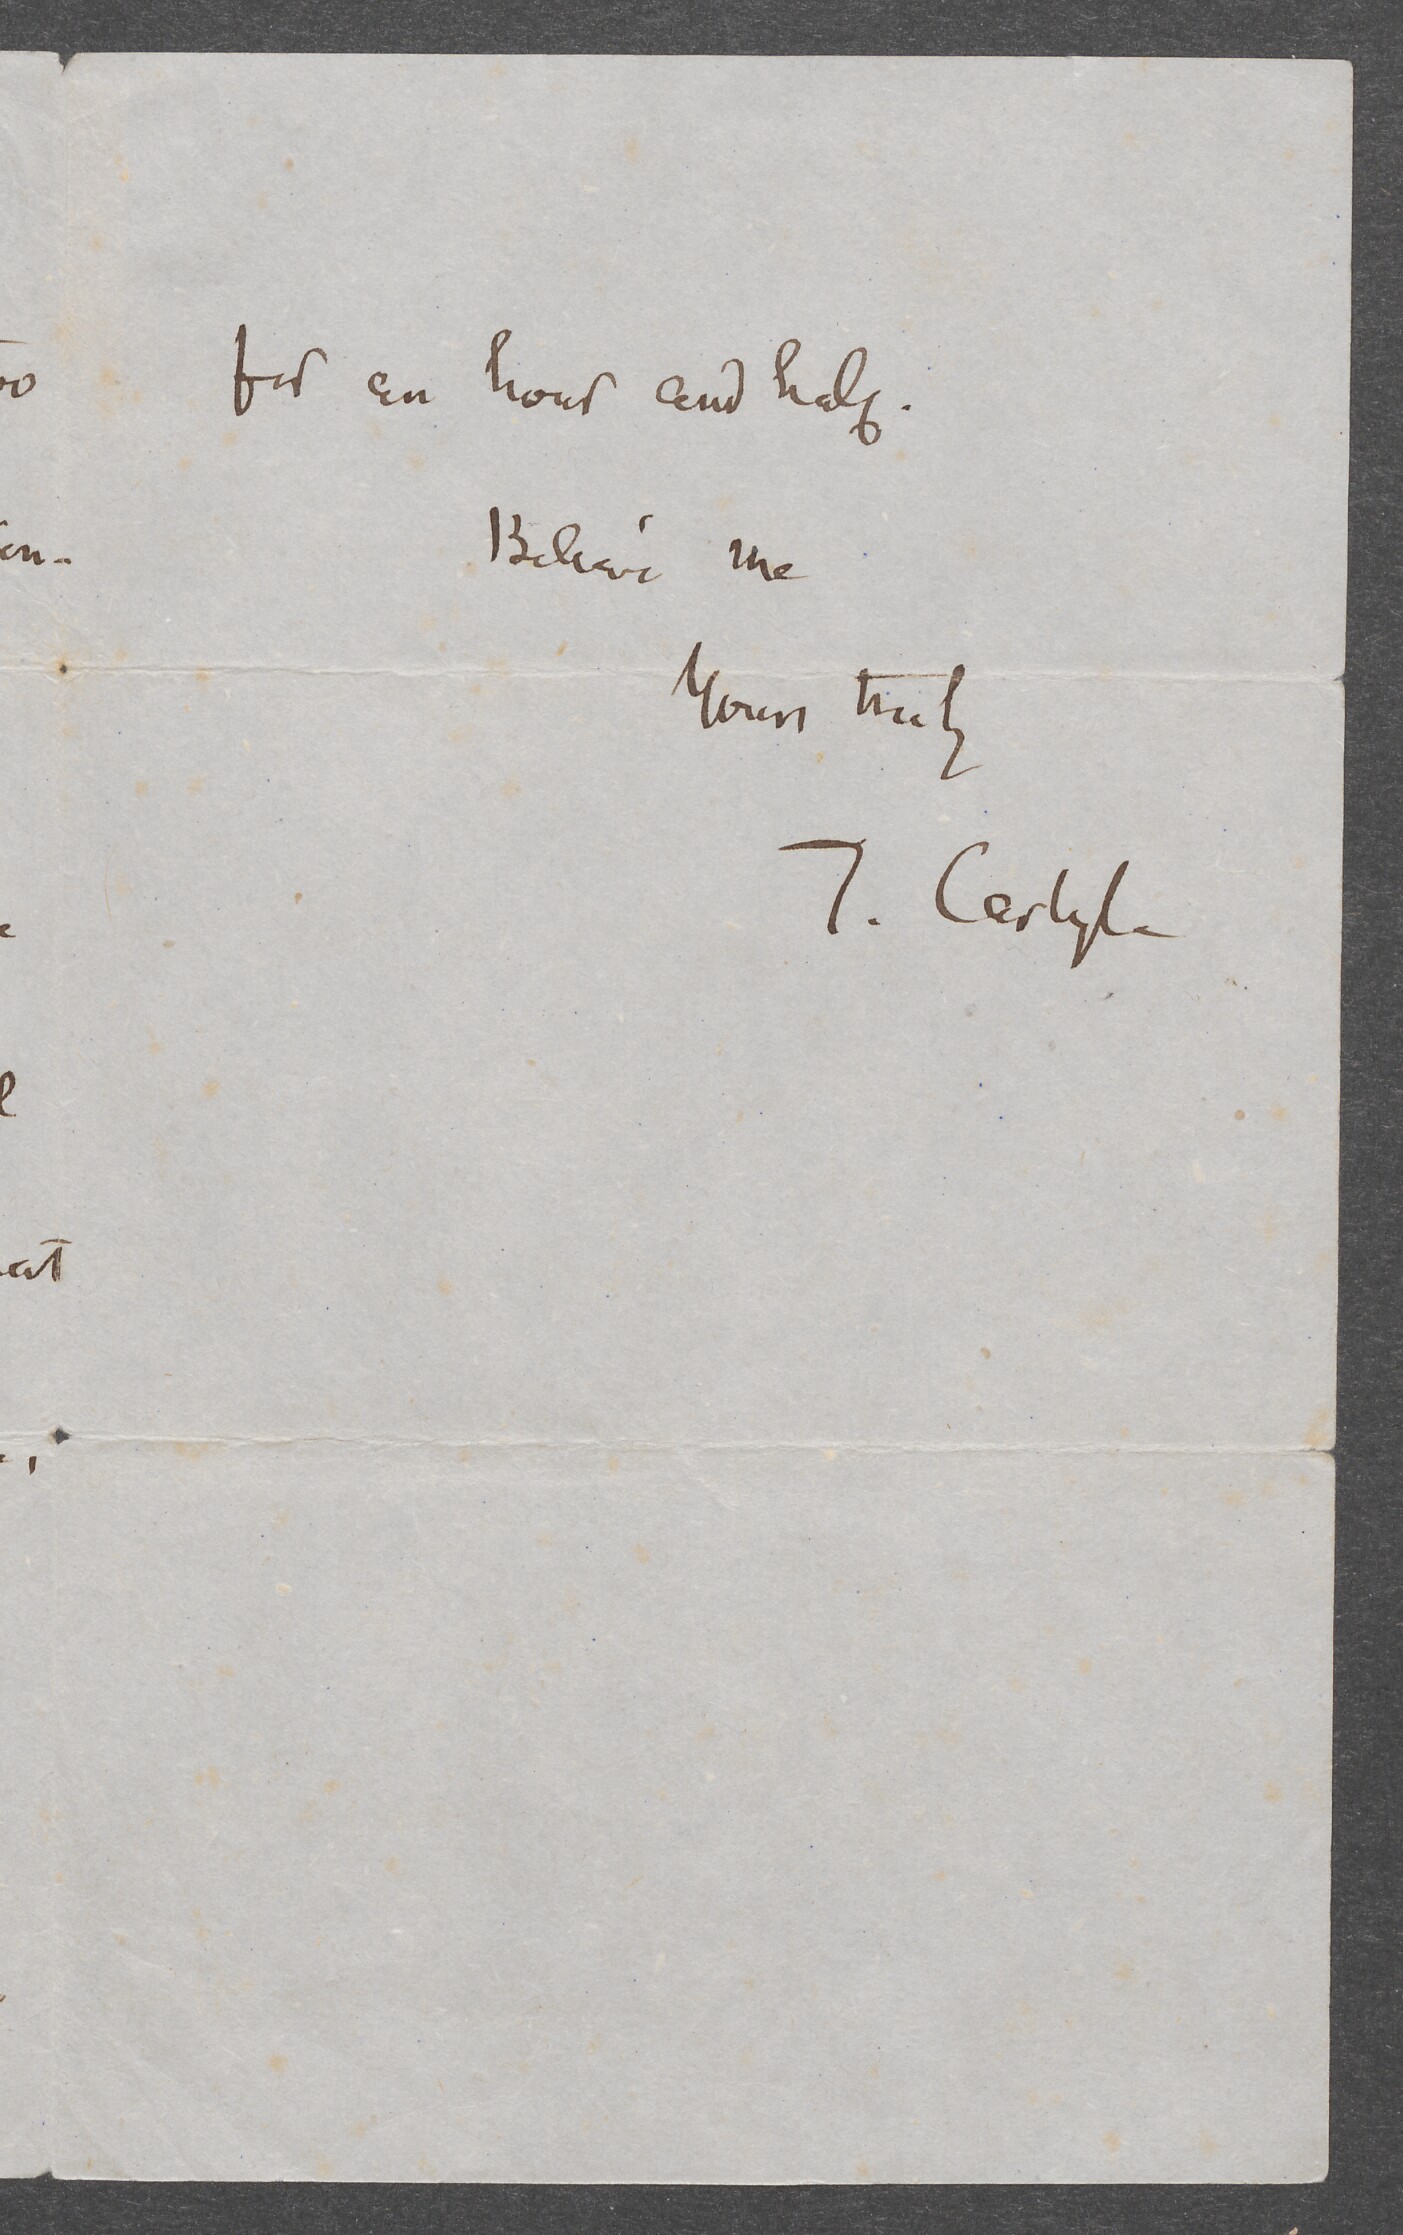 for an hour and half.
Believe me
Yours truly
T. Carlyle